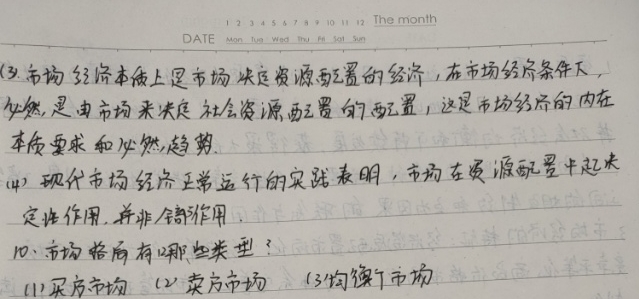 1 2 3 4 5 6 7 8 9 10 11 12 The month
DATE Mon Tue Wed Thu Fri Sat Sun
(3).市场经济本质上是市场决定资源配置的经济,在市场经济条件下,
必然是由市场来决定社会资源配置的配置,这是市场经济的内在
本质要求和必然趋势.
(4) 现代市场经济正常运行的实践表明,市场在资源配置中起决
定性作用,并非全部作用.
10.市场格局有哪些类型?
(1)买方市场 (2)卖方市场 (3)均衡市场